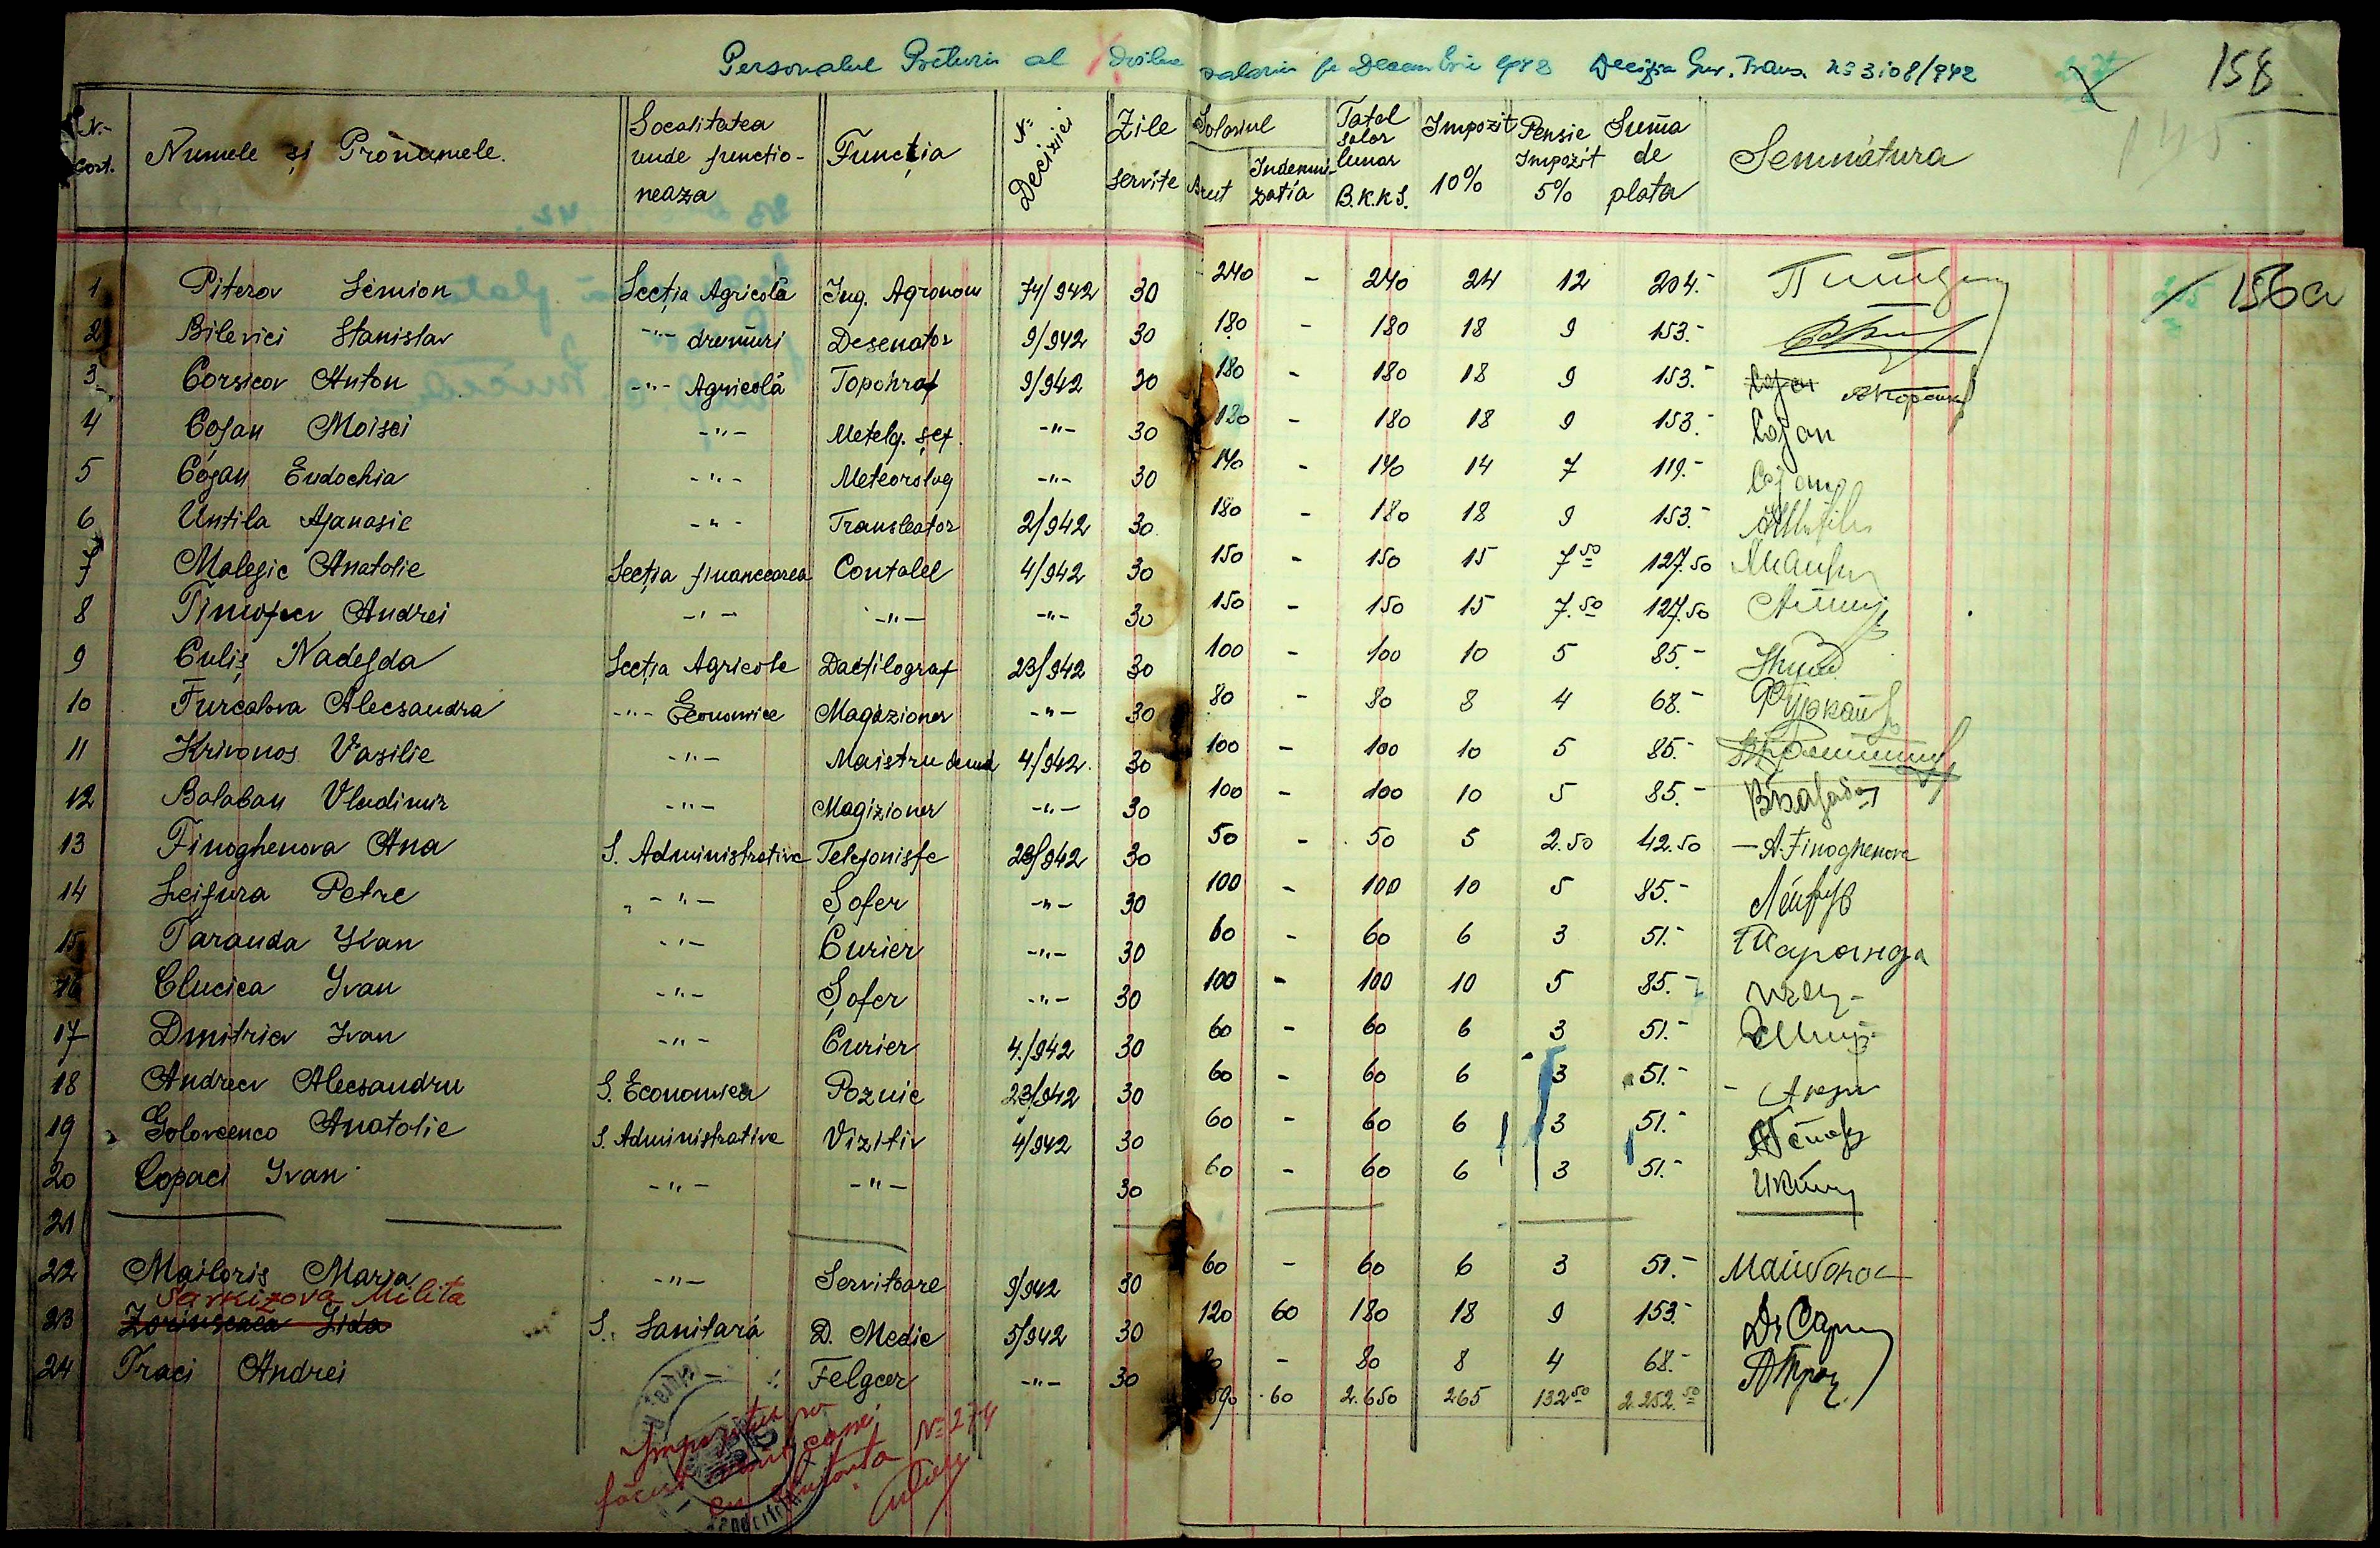 Personalul Preturii al salariu pe Decembrie 1942 Decizia Guv. Trans. № 3108/942 158
№ Cort. Numele și Pronumele. Localitatea unde functioneaza Funcția № Deciziei Zile servite Solariul Brut Indemnizatia Total solar lunar B.K.K.S. Impozit 10% Pensie Impozit 5% Suma de plata Semnătura
1 Piterov Semion Secția Agricolă Ing. Agronom 74/942 30 240 - 240 24 12 204.- 156a
2 Bilevici Stanislav -"- drumuri Desenator 9/942 30 180 - 180 18 9 153.-
3 Corsicov Anton -"- Agricolă Topohraf 9/942 30 180 - 180 18 9 153.-
4 Cojan Moisei -"- Metelg. șef. -"- 30 180 - 180 18 9 153.- Cojan
5 Cojan Eudochia -"- Meteorolog -"- 30 140 - 140 14 7 119.-
6 Untila Afanasie -"- Translator 2/942 30 180 - 180 18 9 153.-
7 Malegic Anatolie Secția financearea Contabel 4/942 30 150 - 150 15 7.50 127.50
8 Timofeev Andrei -"- -"- -"- 30 150 - 150 15 7.50 127.50
9 Culiș Nadejda Secția Agricole Dactilograf 23/942 30 100 - 100 10 5 85.-
10 Furcalova Alecsandra -"- Economice Magazioner -"- 30 80 - 80 8 4 68.-
11 Krivonos Vasilie -"- Maistru 4/942 30 100 - 100 10 5 85.-
12 Balaban Vladimir -"- Magizioner -"- 30 100 - 100 10 5 85.-
13 Finoghenova Ana S. Administrative Telefoniste 23/942 30 50 - 50 5 2.50 42.50 - A. Finoghenova
14 Leifura Petre -"- Șofer -"- 30 100 - 100 10 5 85.-
15 Taranda Ivan -"- Curier -"- 30 60 - 60 6 3 51.- Таранда
16 Clucica Ivan -"- Șofer -"- 30 100 - 100 10 5 85.-
17 Dmitriev Ivan -"- Curier 4/942 30 60 - 60 6 3 51.-
18 Andreev Alecsandru S. Economica Poznic 23/942 30 60 - 60 6 3 51.-
19 Golovcenco Anatolie S. Administrative Vizitiv 4/942 30 60 - 60 6 3 51.-
20 Copaci Ivan -"- -"- 30 60 - 60 6 3 51.-
21
22 Maiboris Maria -"- Servitoare 9/942 30 60 - 60 6 3 51.-
Sarkizova Milita
23 Zorinscaea Lida S. Sanitară D. Medic 5/942 30 120 60 180 18 9 153.-
24 Traci Andrei Felgcer -"- 30 80 - 80 8 4 68.-
60 2.650 265 132.50 2.252.50
№ 274